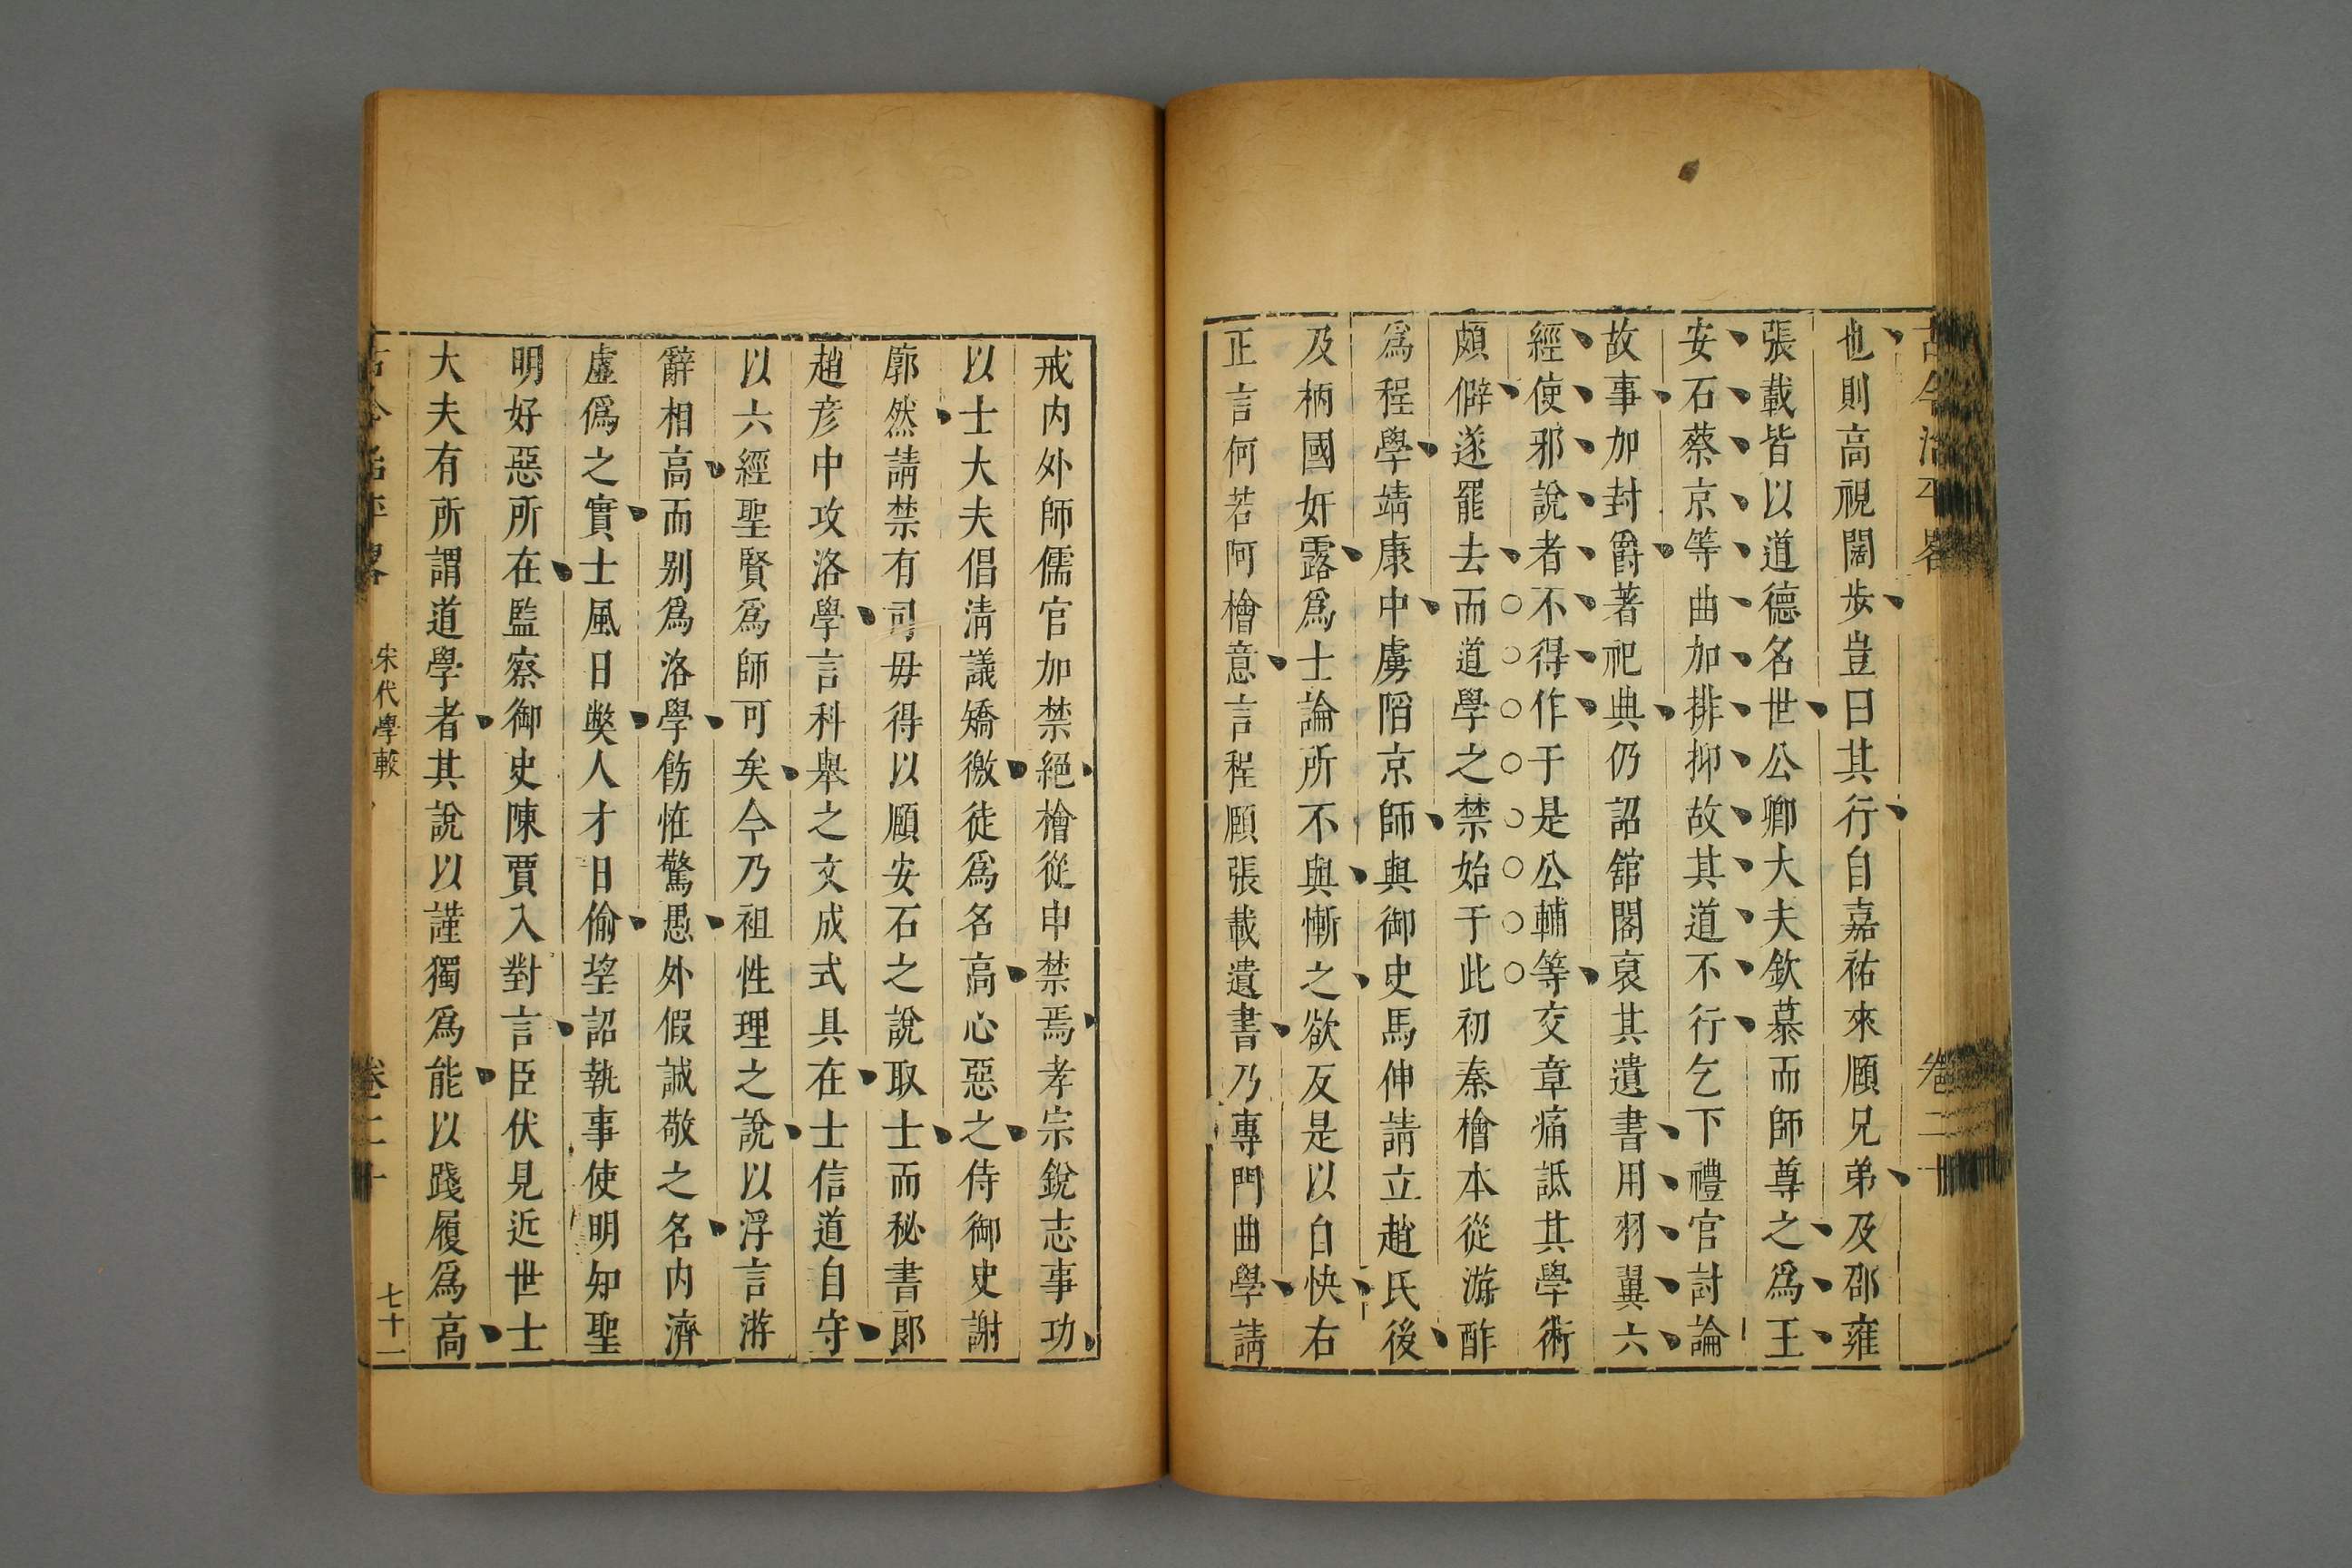 古今治平畧 卷二十
也則高視闊步豈曰其行自嘉祐來頤兄弟及邵雍
張載皆以道德名世公卿大夫欽慕而師尊之爲王
安石蔡京等曲加排抑故其道不行乞下禮官討論
故事加封爵著祀典仍詔舘閣裒其遺書用羽翼六
經使邪說者不得作于是公輔等交章痛詆其學術
頗僻遂罷去而道學之禁始于此初秦檜本從游酢
爲程學靖康中虜陷京師與御史馬伸請立趙氏後
及柄國奸露爲士論所不與慚之欲反是以自快右
正言何若阿檜意言程頤張載遺書乃專門曲學請
戒内外師儒官加禁絕檜從申禁焉孝宗銳志事功
以士大夫倡清議矯徼徒爲名高心惡之侍御史謝
廓然請禁有司毋得以頤安石之說取士而秘書郎
趙彦中攻洛學言科舉之文成式具在士信道自守
以六經聖賢爲師可矣今乃祖性理之說以浮言游
辭相高而别爲洛學飭恠驚愚外假誠敬之名内濟
虛僞之實士風日獘人才日偷望詔執事使明知聖
明好惡所在監察御史陳賈入對言臣伏見近世士
大夫有所謂道學者其說以謹獨爲能以踐履爲高
古今治平畧 宋代學較 卷二十 七十一